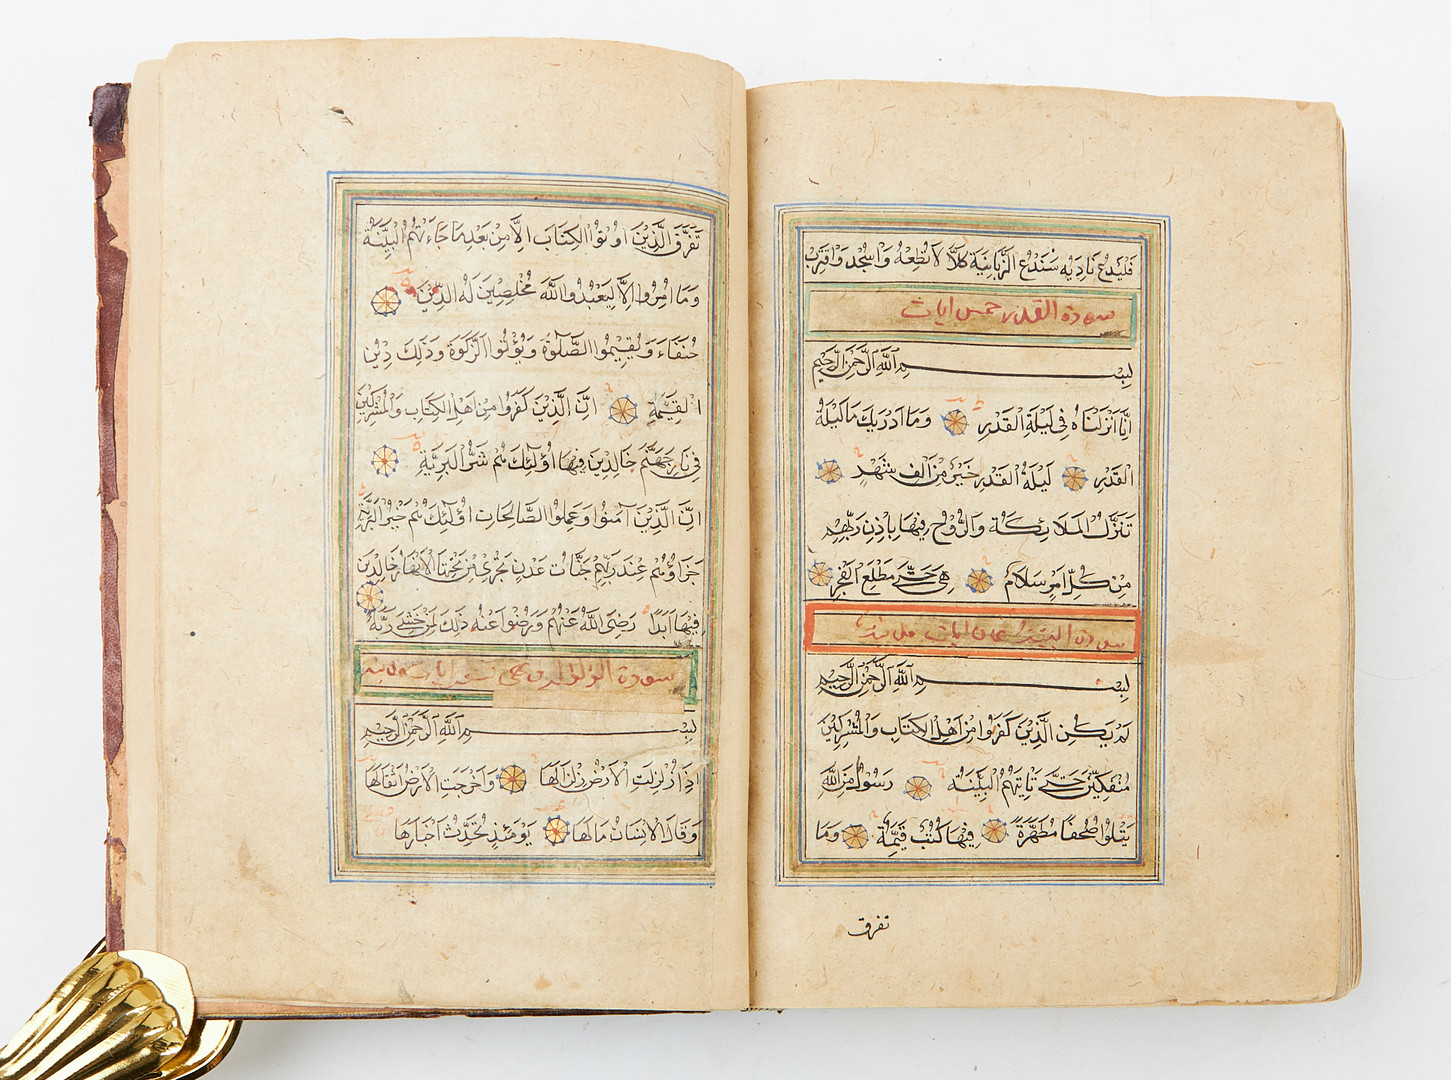 فَلْيَدْعُ نَادِيَهُ سَنَدْعُ الزَّبَانِيَةَ كَلَّا لَا تُطِعْهُ وَاسْجُدْ وَاقْتَرِبْ
سورة القدر خمس ايات
بِسْمِ اللَّهِ الرَّحْمَنِ الرَّحِيمِ
اِنَّا اَنْزَلْنَاهُ فِي لَيْلَةِ الْقَدْرِ وَمَا اَدْرٰيكَ مَا لَيْلَةُ
الْقَدْرِ لَيْلَةُ الْقَدْرِ خَيْرٌ مِنْ اَلْفِ شَهْرٍ
تَنَزَّلُ الْمَلَائِكَةُ وَالرُّوحُ فِيهَا بِاِذْنِ رَبِّهِمْ
مِنْ كُلِّ اَمْرٍ سَلَامٌ هِيَ حَتَّى مَطْلَعِ الْفَجْرِ
سورة البينة ثمان ايات
بِسْمِ اللَّهِ الرَّحْمَنِ الرَّحِيمِ
لَمْ يَكُنِ الَّذِينَ كَفَرُوا مِنْ اَهْلِ الْكِتَابِ وَالْمُشْرِكِينَ
مُنْفَكِّينَ حَتَّى تَاْتِيَهُمُ الْبَيِّنَةُ رَسُولٌ مِنَ اللَّهِ
يَتْلُوا صُحُفًا مُطَهَّرَةً فِيهَا كُتُبٌ قَيِّمَةٌ وَمَا
تفرق
تَفَرَّقَ الَّذِينَ اُوتُوا الْكِتَابَ اِلَّا مِنْ بَعْدِ مَا جَاءَتْهُمُ الْبَيِّنَةُ
وَمَا اُمِرُوا اِلَّا لِيَعْبُدُوا اللَّهَ مُخْلِصِينَ لَهُ الدِّينَ
حُنَفَاءَ وَيُقِيمُوا الصَّلٰوةَ وَيُؤْتُوا الزَّكٰوةَ وَذٰلِكَ دِينُ
الْقَيِّمَةِ اِنَّ الَّذِينَ كَفَرُوا مِنْ اَهْلِ الْكِتَابِ وَالْمُشْرِكِينَ
فِي نَارِ جَهَنَّمَ خَالِدِينَ فِيهَا اُولٰئِكَ هُمْ شَرُّ الْبَرِيَّةِ
اِنَّ الَّذِينَ آمَنُوا وَعَمِلُوا الصَّالِحَاتِ اُولٰئِكَ هُمْ خَيْرُ الْبَرِيَّةِ
جَزَاؤُهُمْ عِنْدَ رَبِّهِمْ جَنَّاتُ عَدْنٍ تَجْرِي مِنْ تَحْتِهَا الْاَنْهَارُ خَالِدِينَ
فِيهَا اَبَدًا رَضِيَ اللَّهُ عَنْهُمْ وَرَضُوا عَنْهُ ذٰلِكَ لِمَنْ خَشِيَ رَبَّهُ
سورة الزلزال ايات
بِسْمِ اللَّهِ الرَّحْمَنِ الرَّحِيمِ
اِذَا زُلْزِلَتِ الْاَرْضُ زِلْزَالَهَا وَاَخْرَجَتِ الْاَرْضُ اَثْقَالَهَا
وَقَالَ الْاِنْسَانُ مَا لَهَا يَوْمَئِذٍ تُحَدِّثُ اَخْبَارَهَا